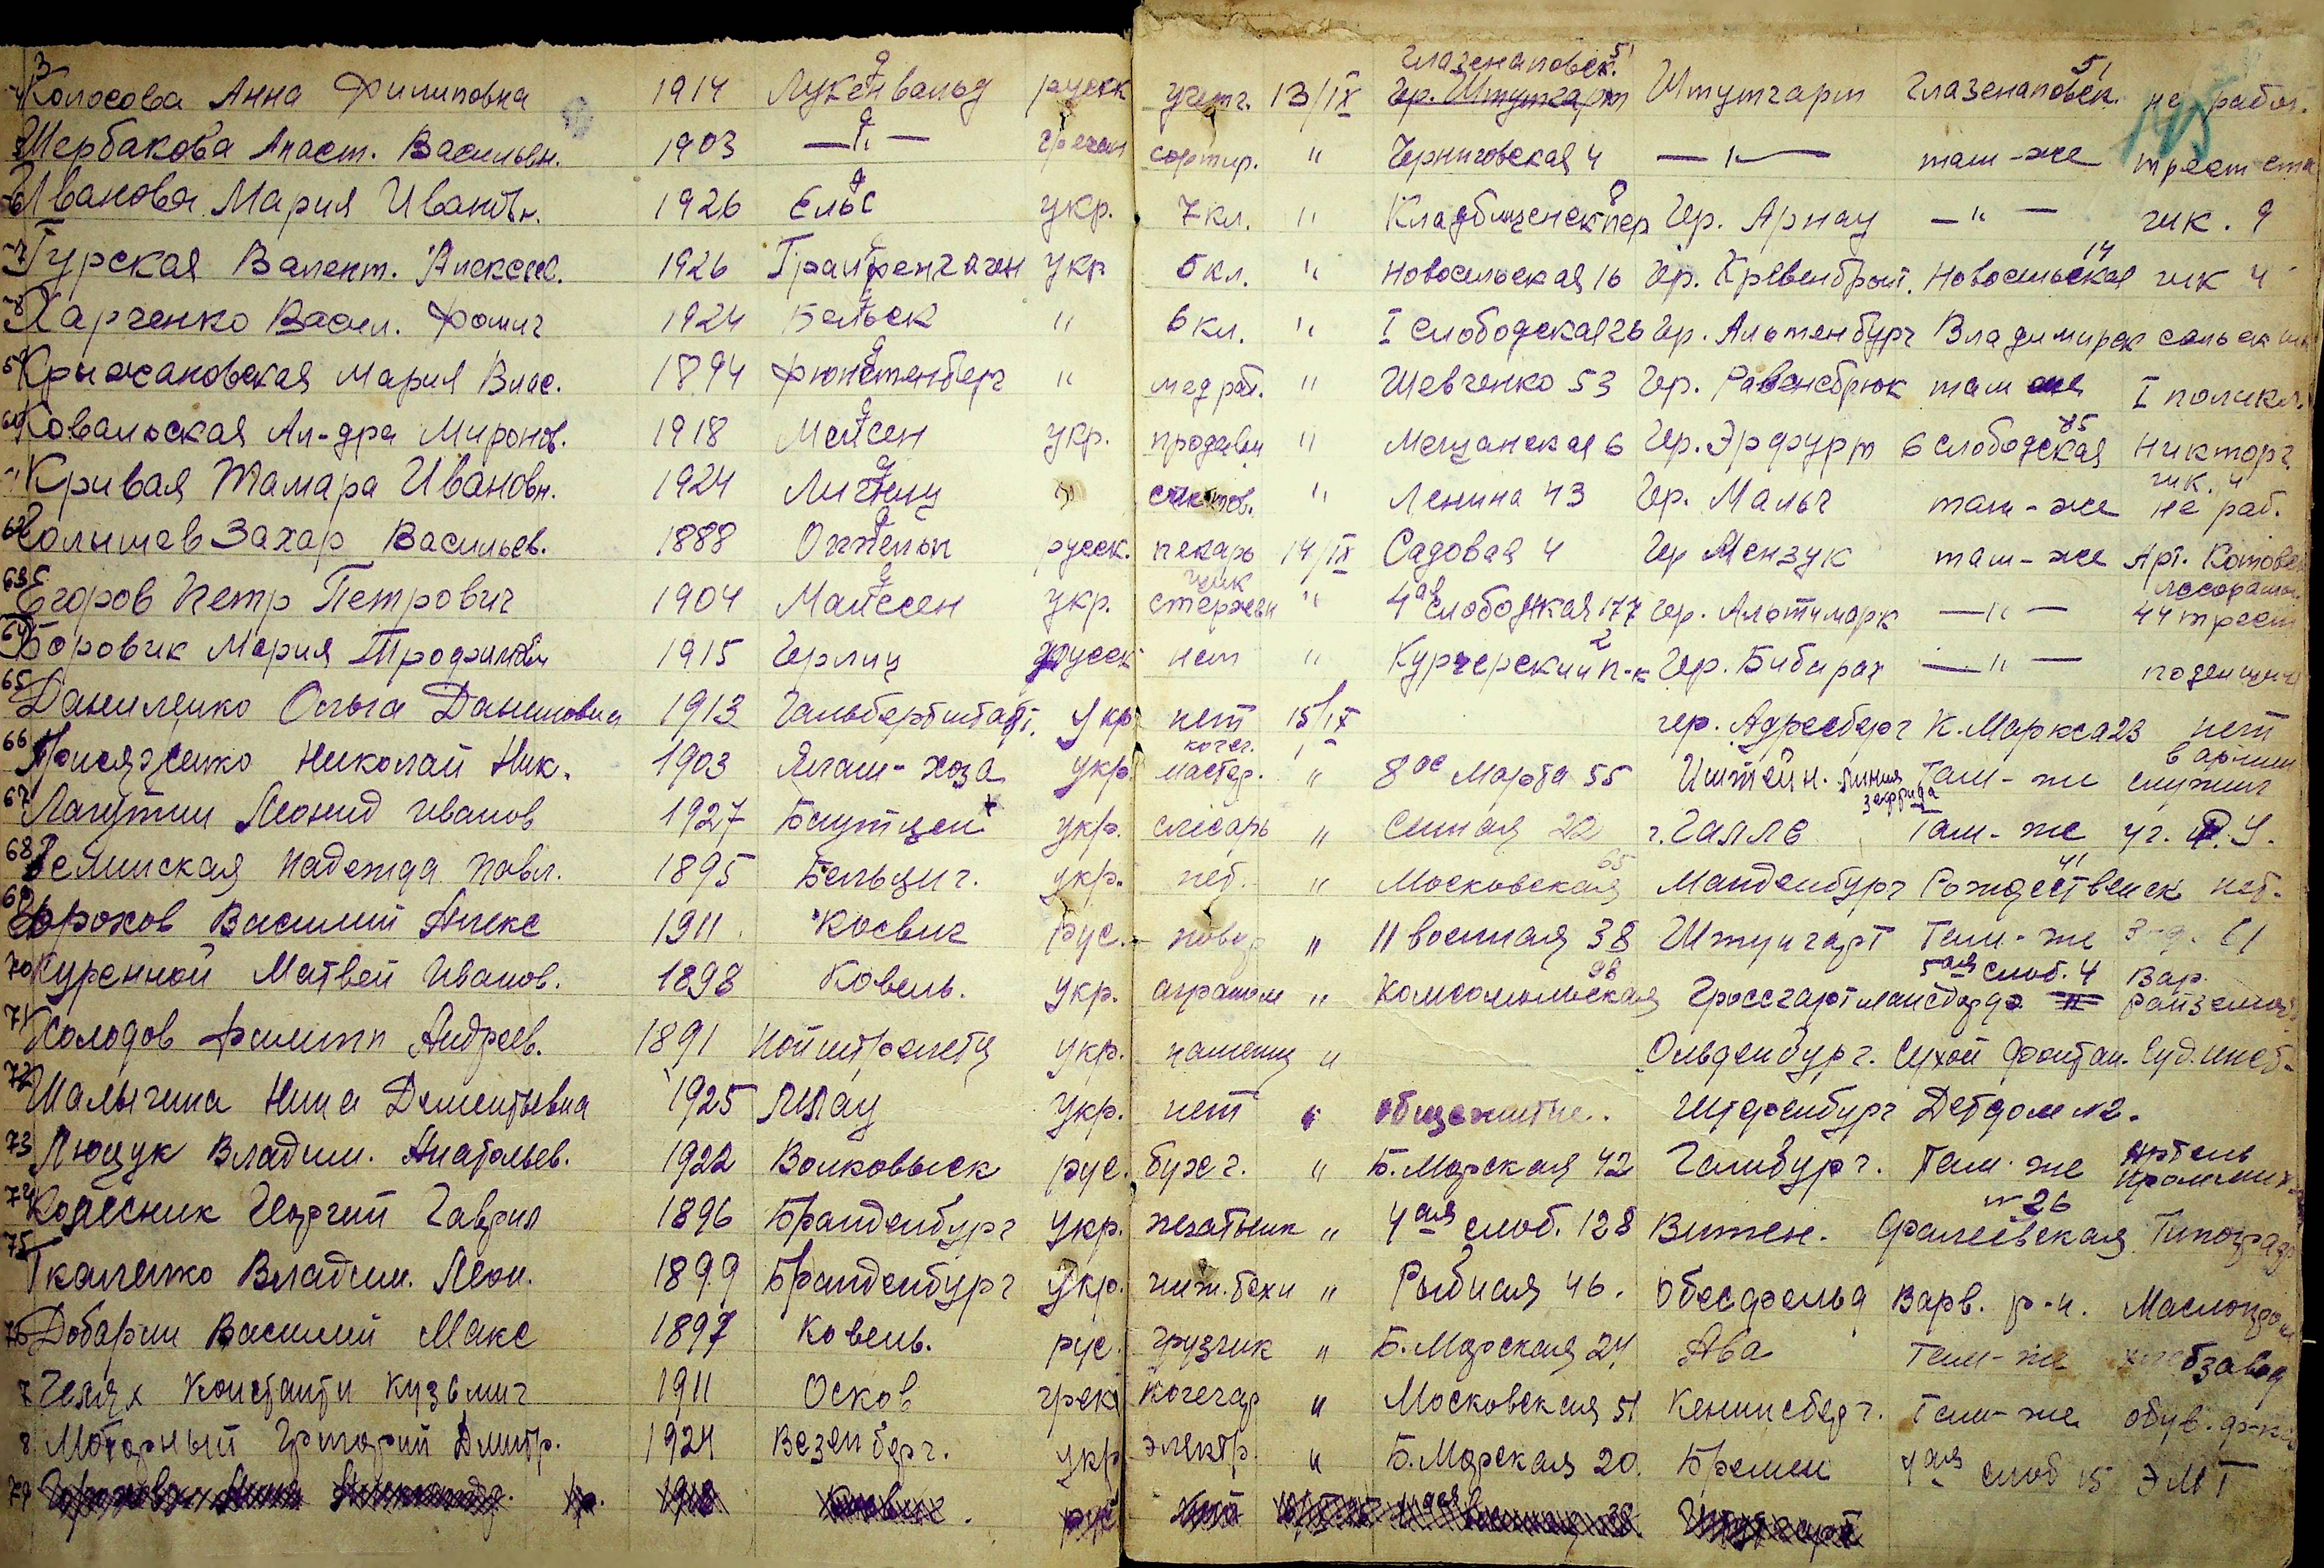 Колосова Анна Филиповна 1914 Лукенвальд русск учетч. 13/IX Глазенаповск. 51 Гер. Штутгарт Штутгарт Глазенаповск. 51 не работ.
Щербакова Анаст. Васильевн. 1903 —"— гречан сортир. " Черниговская 4 —"— там-же трест ста
Иванова Мария Ивановн. 1926 Ельс укр. 7 кл. " Кладбищенск пер 8 Гер. Арнау —"— гик. 9
Гурская Валент. Алексеев. 1926 Грайфенгаген укр 5 кл. " Новосельская 16 Гер. Новосельская 14 гик 4
Харченко Васил. Фомич 1924 Бельск " 6 кл. " I Слободская 26 Гер. Альтенбург Владимирск сельск
Крыжановская Мария Влас. 1894 Фюрстенберг " мед раб. " Шевченко 53 Гер. Равенсбрюк там же I поликл.
60 Ковальская Ал-дра Миронов. 1918 Мейсен укр. продавец " Мещанская 6 Гер. Эрфурт 6 слободская 85 Никторг
Кривая Тамара Ивановн. 1924 Лигниц " " Ленина 43 Гер. Мальч там-же гик. 4 не раб.
62 Захар Васильев. 1888 Оппельн русск. пекарь 14/IX Садовая 4 Гер Мензук там-же Арт. Котовск
63 Егоров Петр Петрович 1904 Майссен укр. стержен щик " 4ая слободская 177 Гер. —"— 44 трест
64 Боровик Мария Трофимовн 1915 Герлиц русск нет " Курьерский п-к 2 Гер. Бибирах —"— поденщина
65 Даниленко Ольга Даниловна 1913 Гальберштадт. Укр нет 15/IX гер. Адресберг К. Маркса 23 нет
66 Присяженко Николай Ник. 1903 Ягаш-хоза укр. кочег. мастер. " 8ое Марта 55 линия зегфрида Там-же в армии служит
67 Лагутин Леонид Иванов 1927 Баутцен укр. слесарь " Сенная 22 г. Галле Там-же уч. Р.У.
68 Надежда Павл. 1895 Бельциг. укр. нет. " Московская 65 Магденбург Рождественск 41 нет.
69 Горохов Василий Алекс 1911 Косвик рус. повор " 11 военная 38 Штутгарт Там-же з-д. 61
70 Куренной Матвей Иванов. 1898 Ковель. укр. агроном " Комсомольская 98 Гроссгартмансдорф 5ая слоб. 4 Вар. райземот
71 Холодов Филипп Андреев. 1891 Нойштренетц укр. " Ольденбург. Сухой Фонтан.
72 Шалыгина Нина Дементьевна 1925 укр. нет " общежитие. Детдом №2.
73 Люцук Владим. Анатольев. 1922 Волковыск рус. бухг. " Б. Морская 42 Гамбург. Там-же Артель
74 Колесник Георгий Гаврил 1896 Бранденбург Укр. печатник " 4ая слоб. 128 Витен. Фалеевская №26 Типограф
75 Ткаленко Владим. Леон. 1899 Бранденбург Укр. " Рыбная 46. Обесфельд Варв. р-н. Маслопром
76 Добарин Василий Макс 1897 Ковель. рус. грузчик " Б. Морская 24 Ава Там-же хлебзавод
7 Константи Кузьмич 1911 Осков грек кочегар " Московская 51 Кенинсберг. Там-же обув. ф-ка
8 Моторный Григорий Дмитр. 1924 Везенберг. укр электр. " Б. Морская 20. Бремен 4ая слоб 15 ЭМТ
79